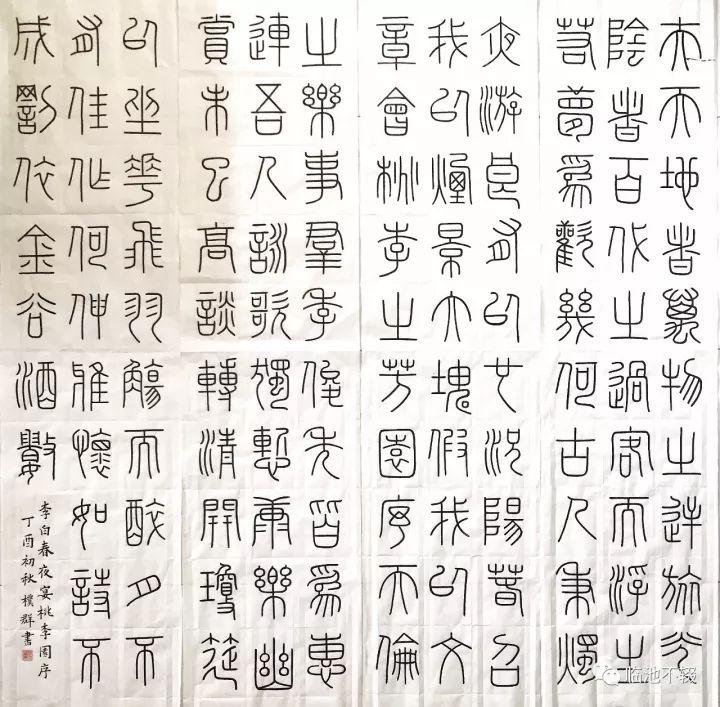 夫天地者萬物之逆旅光
陰者百代之過客而浮生
若夢爲歡幾何古人秉燭
夜游良有以也況陽春召
我以煙景大塊假我以文
章會桃李之芳園序天倫
之樂事羣季俊秀皆爲惠
連吾人詠歌獨慙康樂幽
賞未已高談轉清開瓊筵
以坐花飛羽觴而醉月不
有佳作何伸雅懷如詩不
成罰依金谷酒數
李白春夜宴桃李園序
丁酉初秋 樸群書
临池不辍